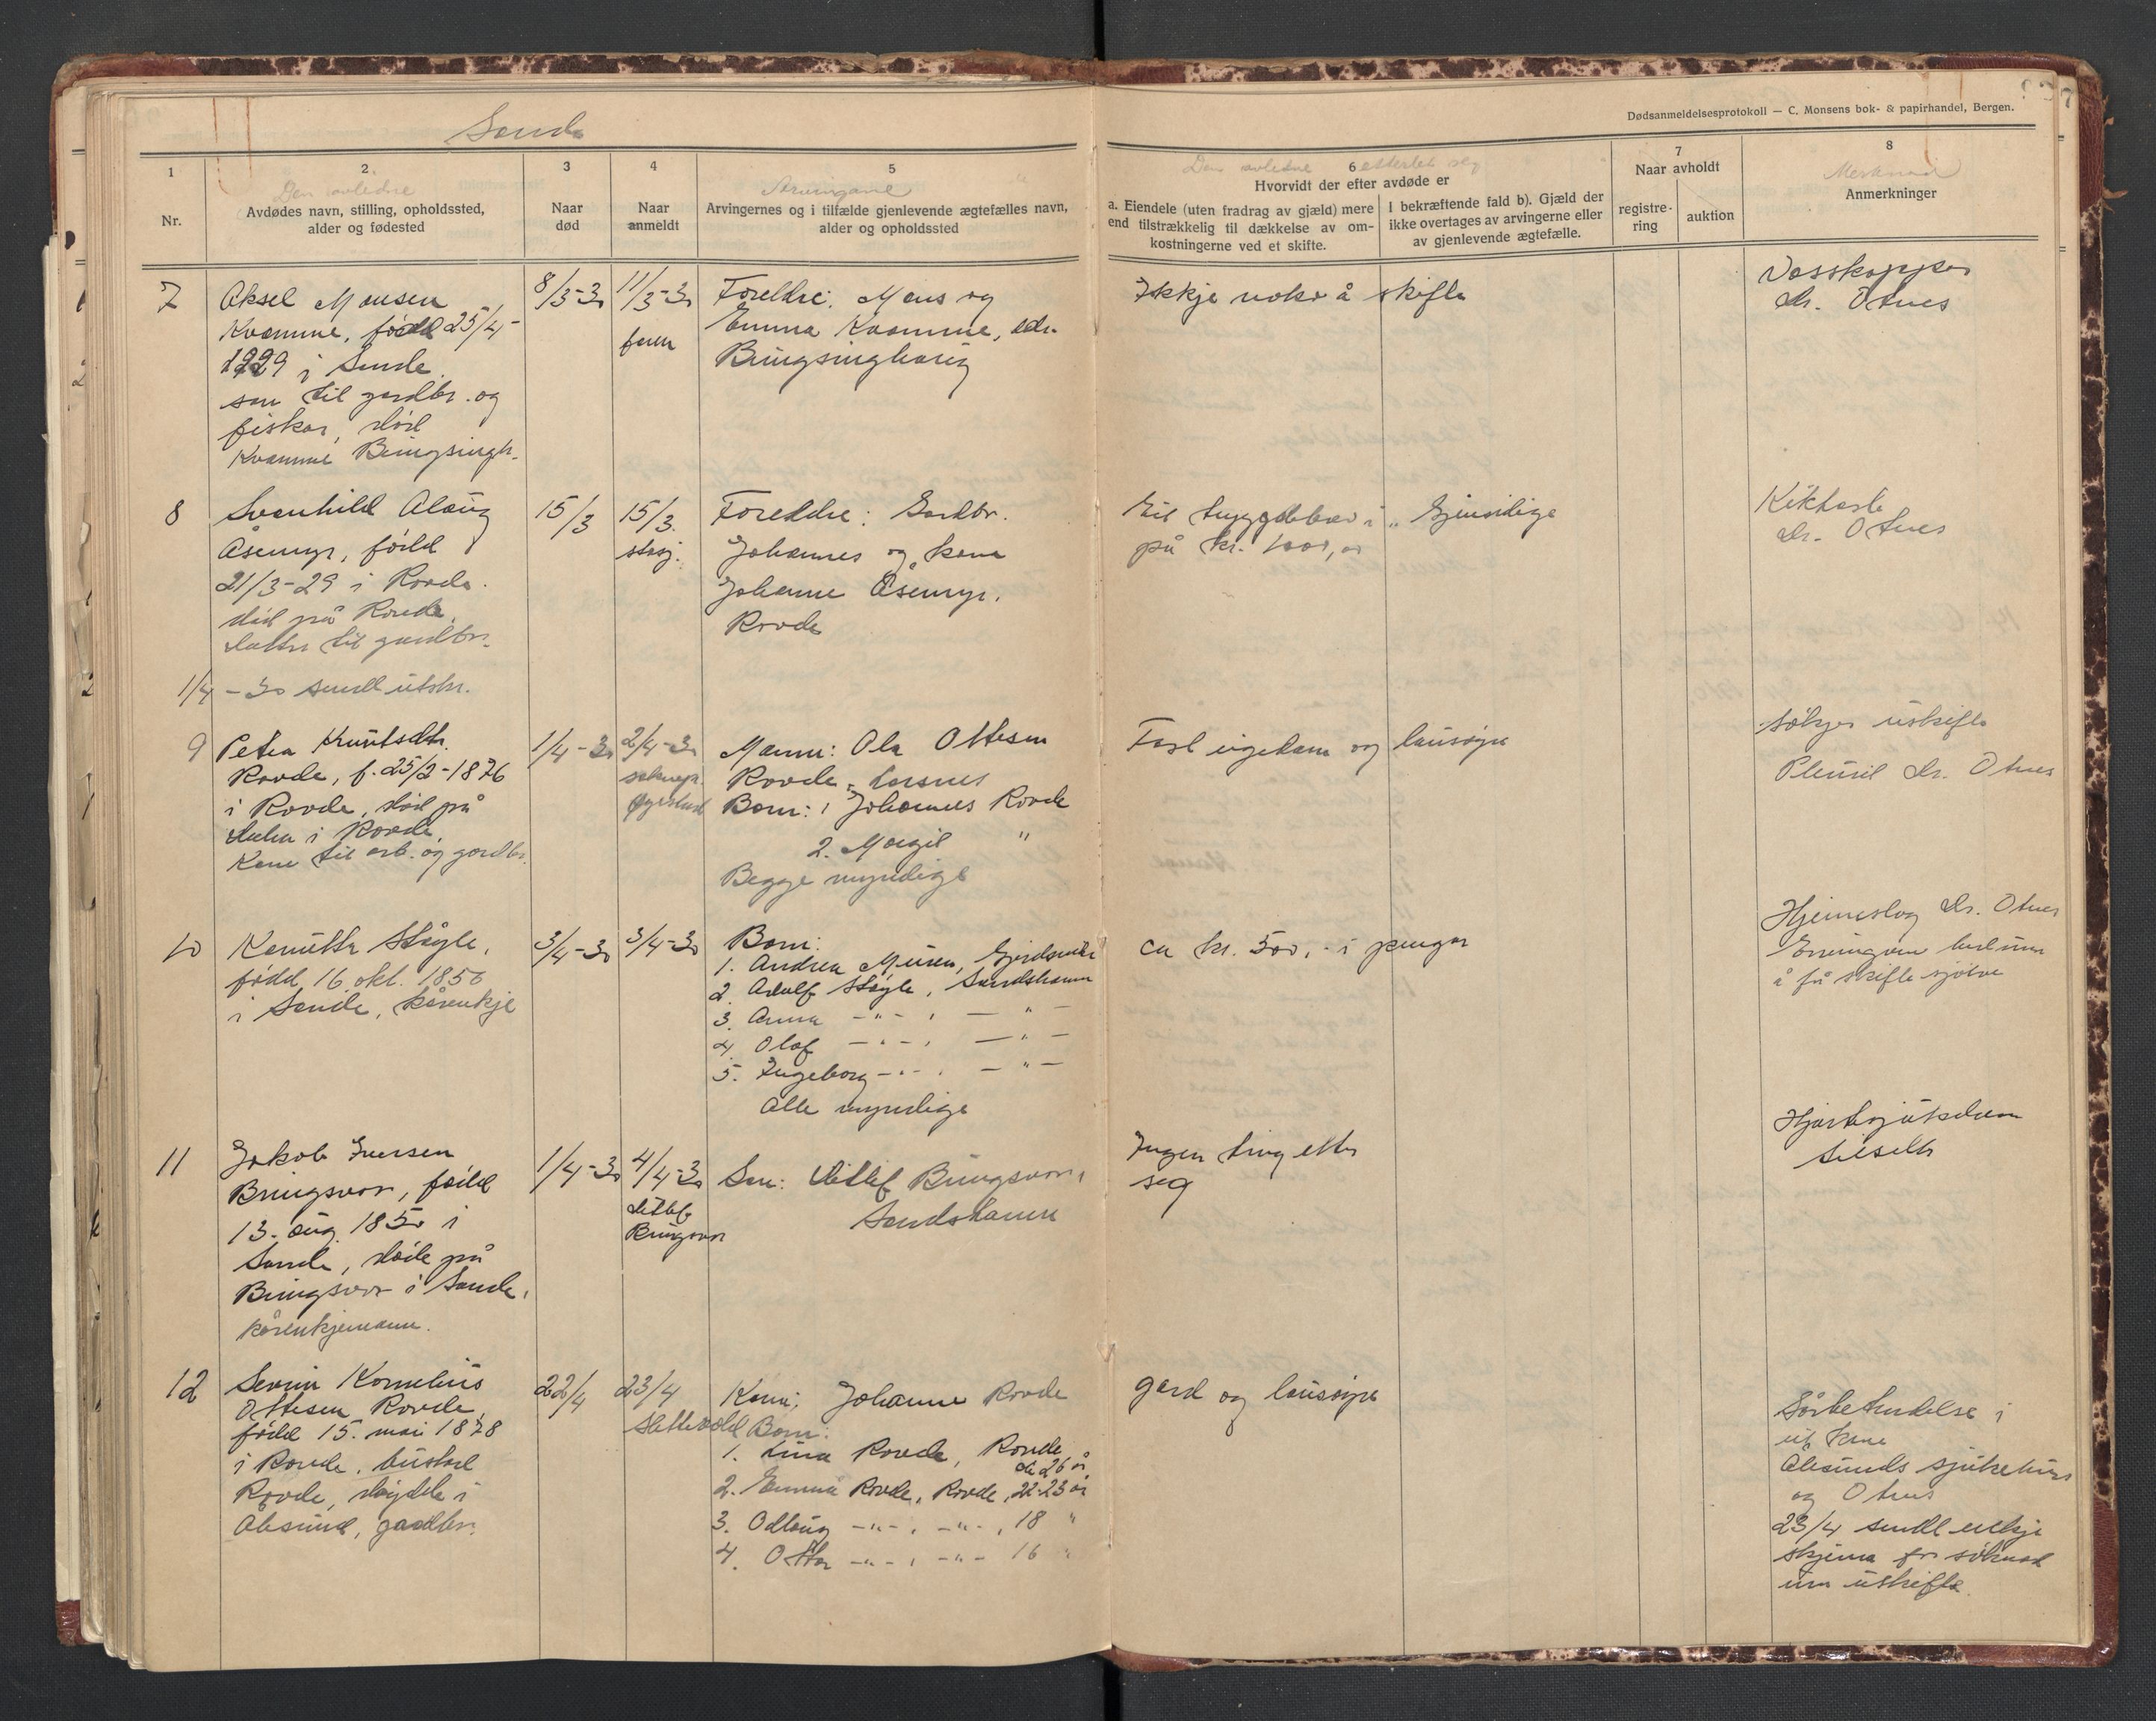 Dødsanmeldelsesprotokoll — C. Monsens bok- & papirhandel, Bergen.
Sande
1
Nr.
2
Den avledne
Avdødes navn, stilling, opholdssted,
alder og fødested
3
Naar
død
4
Naar
anmeldt
5
Arvingane
Arvingernes og i tilfælde gjenlevende ægtefælles navn,
alder og opholdssted
6
Den avledne etterlet seg
Hvorvidt der efter avdøde er
a. Eiendele (uten fradrag av gjæld) mere
end tilstrækkelig til dækkelse av om-
kostningerne ved et skifte.
I bekræftende fald b). Gjæld der
ikke overtages av arvingerne eller
av gjenlevende ægtefælle.
7
Naar avholdt
registre-
ring
auktion
8
Merknad
Anmerkninger
7
Aksel Monsen
Kvamme, fødd 25/4-
1929 i Sande
son til gardbr. og
fiskar, död
Kvamme Bringsingh.
8/3-30
11/3-30
faren
Foreldre: Mons og
Emma Kvamme, adr.
Bringsinghaug
Ikkje noko å skifta
Vasskoppar
dr. Otnes
8
Svanhild Alaug
Åsemyr, född
21/3-29 i Rovde.
död på Rovde,
datter til gardbr.
15/3
15/3.
Foreldre: Gardbr.
Johannes og kona
Johanne Åsemyr.
Rovde
Eit trygdebrev i "Gjensidige
på kr. 1000,00
Kikhoste
dr. Otnes
1/4-30 sendt utskr.
9
Petra Knutsdtr.
Rovde, f. 25/2-1876
i Rovde, död på
i Rovde,
Kone til arb. og gardbr.
1/4-30
2/4-30
Mann: Ola Ottesen
Rovde,
Born: 1 Johannes Rovde
2. Margit "
Begge myndige
Fast eigedom og lausøyre
Søkjer uskifte
Pleurit dr. Otnes
10
Støyle,
född 16. okt. 1856
i Sande, kårenkje
3/4-30
3/4-30
Born:
1. Andrea Muren, Gjerdsvika
2. Adolf Støyle, Sandshamn
3. Anna —"— , — " —
4. Olaf —"— , — " —
5. Ingeborg —"— , — " —
Alle myndige
ca kr. 500,- i pengar
Hjerneslag dr. Otnes
Ervingane bed um
å få skifte sjølve
11
Jakob Iversen
Bringsvor, född
13. aug. 1850 i
Sande, döde på
Bringsvor i Sande,
kårenkjemann.
1/4-30
4/4-30
Detlef
Bringsvor
Son: Detlef Bringsvor,
Sandshamn
Ingen ting etter
seg
Hjartesjukdom
12
Severin Kornelius
Ottesen Rovde,
född 15. mai 1878
i Rovde, bustad
Rovde, døydde i
Ålesund, gardbr.
22/4
23/4
Kona: Johanne Rovde
Born:
1. Lina Rovde, Rovde,
26 år
2. Emma Rovde, Rovde, 22-23 år
3. Odlaug —"— , —"— , 18 "
4. Ottar —"— , —"— 16 "
gard og lausøyre
Ålesunds sjukehus
og Otnes
23/4 sendt enkje
skjema for söknad
um uskifte.